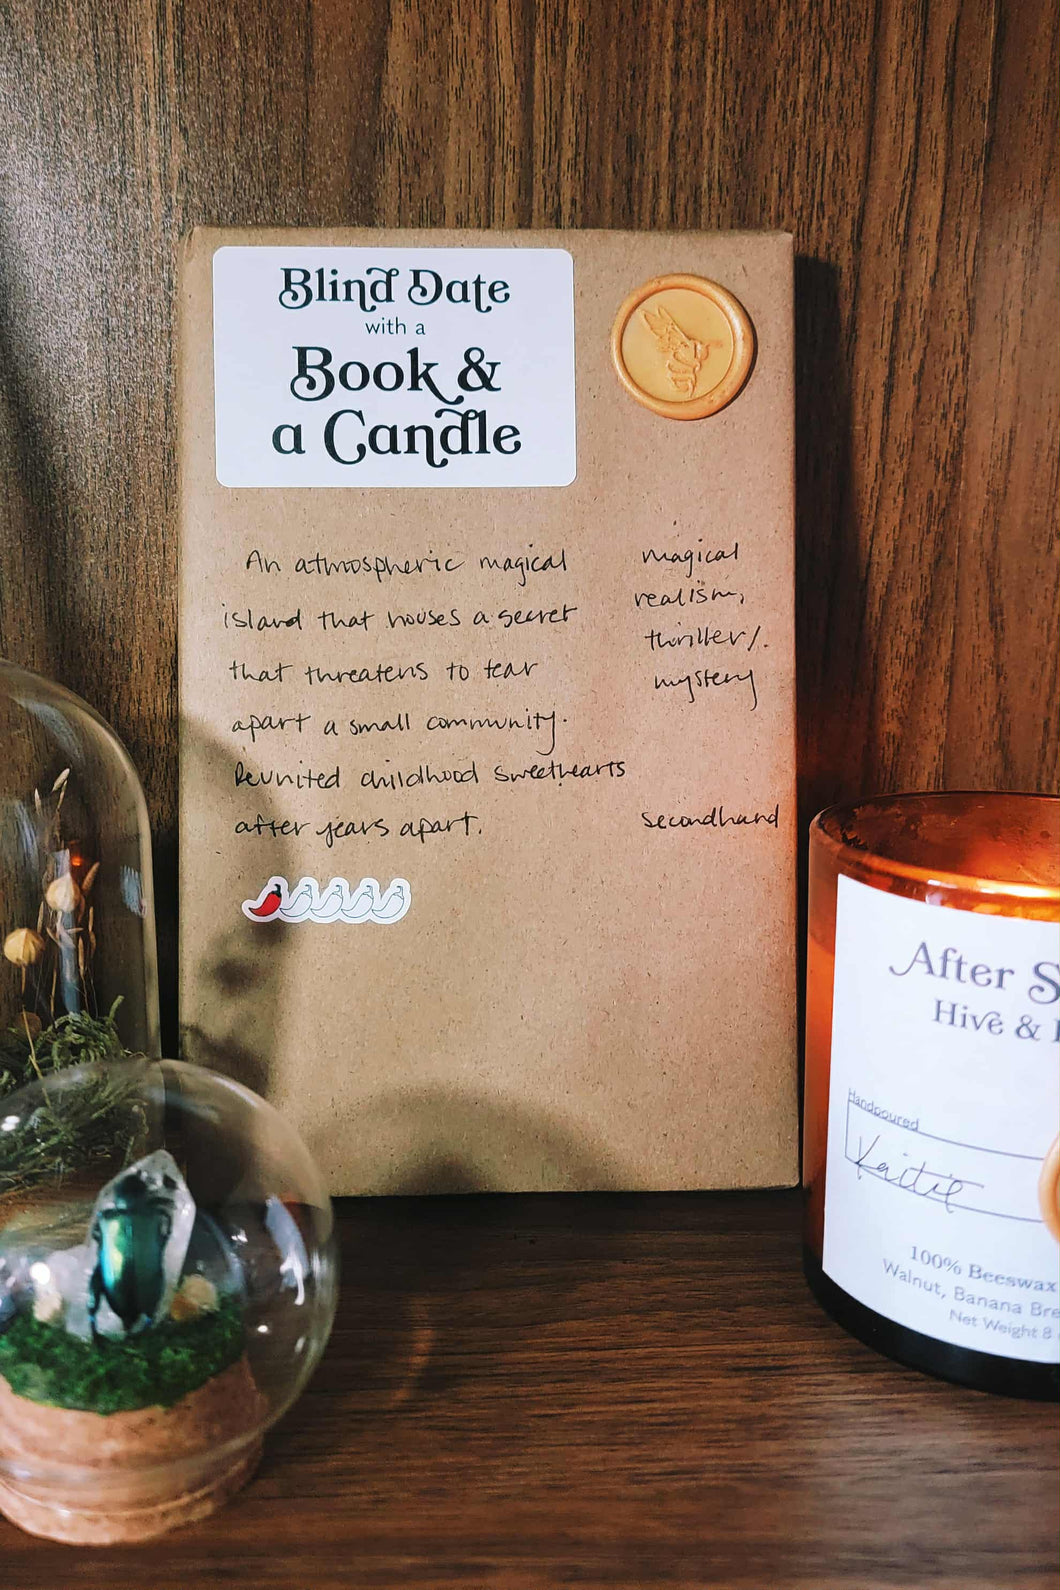 Blind Date
with a
Book &
a Candle
An atmospheric magical
island that houses a secret
that threatens to tear
apart a small community.
Reunited childhood sweethearts
after years apart.
magical
realism,
thriller/.
mystery
secondhand
After S
Hive &
Handpoured
Kaitie
100% Beeswax
Walnut, Banana Bre
Net Weight 8